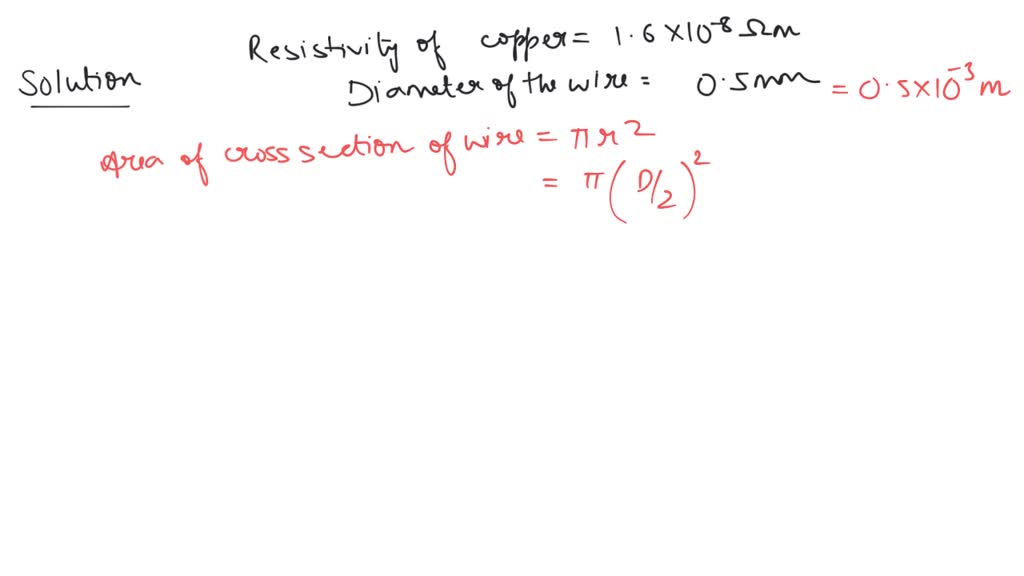 Resistivity of copper = 1.6 × 10⁻⁸ Ωm
Solution
Diameter of the wire = 0.5 mm = 0.5 × 10⁻³ m
Area of cross section of wire = πr2
= π(D/2)²